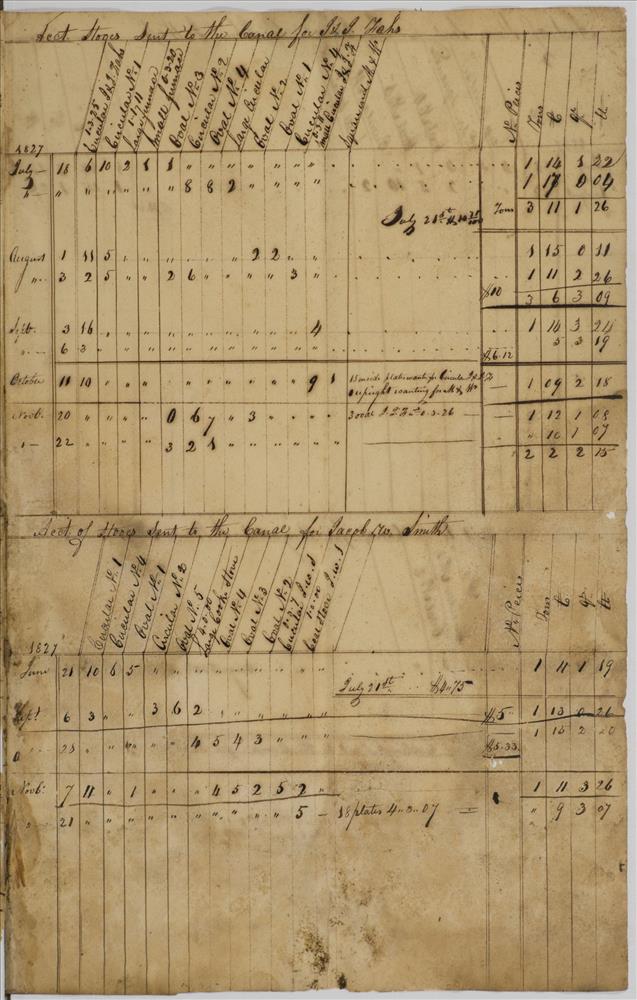 Acct Stoves Sent to the Canal for J & J. Hahs
1-3-25 Circular J & J Hahs
Circular No. 1
1-1-11 Large furnace
0-3-20 Small furnace
Oval No. 3
Circular No. 2
Oval No. 4
Large Circular
Oval No. 2
Oval No. 1
Circular No. 4
Square
No Paid
Tons
C
qr
lb
1827
July 18 6 10 2 1 1 " " " " " " " 1 14 1 22
" " " " " " " 8 8 2 " " " " 1 17 0 04
July 21st Tons 3 11 1 26
August 1 11 5 " " " " " " 2 2 " " 1 15 0 11
" 3 2 5 " " 2 6 " " " " 3 " 1 11 2 26
$10 3 6 3 09
Sept. 3 16 " " " " " " " " " " 4 1 14 3 24
" 6 3 " " " " " " " " " " " 5 3 19
$6.12
October 11 10 " " " " " " " " " " 9 1 13 inside plates wanting for Circular J & J H
upright wanting for 1 09 2 18
Novb. 20 " " " " 0 6 7 " 3 " " " " 3 oval 0-3-26 1 12 1 08
" 22 " " " " 3 2 1 " 10 1 07
2 2 2 15
Acct of Stoves Sent to the Canal for Jacob W. Smith
Circular No. 1
Circular No. 4
Oval No. 1
Circular No. 2
Oval No. 5
Large Cooke Stove
Oval No. 4
Oval No. 3
Oval No. 2
Circular J. W. S
Coal Stove J. W. S
No Peices
Tons
C
qr
lb
1827
June 21 10 6 5 " " " " " " " " 1 11 1 19
July 21st $4.75
Sept 6 3 " " 3 6 2 " " " " " $5 1 13 0 26
" 23 " " " " " 4 5 4 3 " " " 1 15 2 20
$5.33
Novb. 7 11 " 1 " " " 4 5 2 5 2 " 1 11 3 26
" 21 " " " " " " " " " " 5 - 18 plates 4-3-07 " 9 3 07